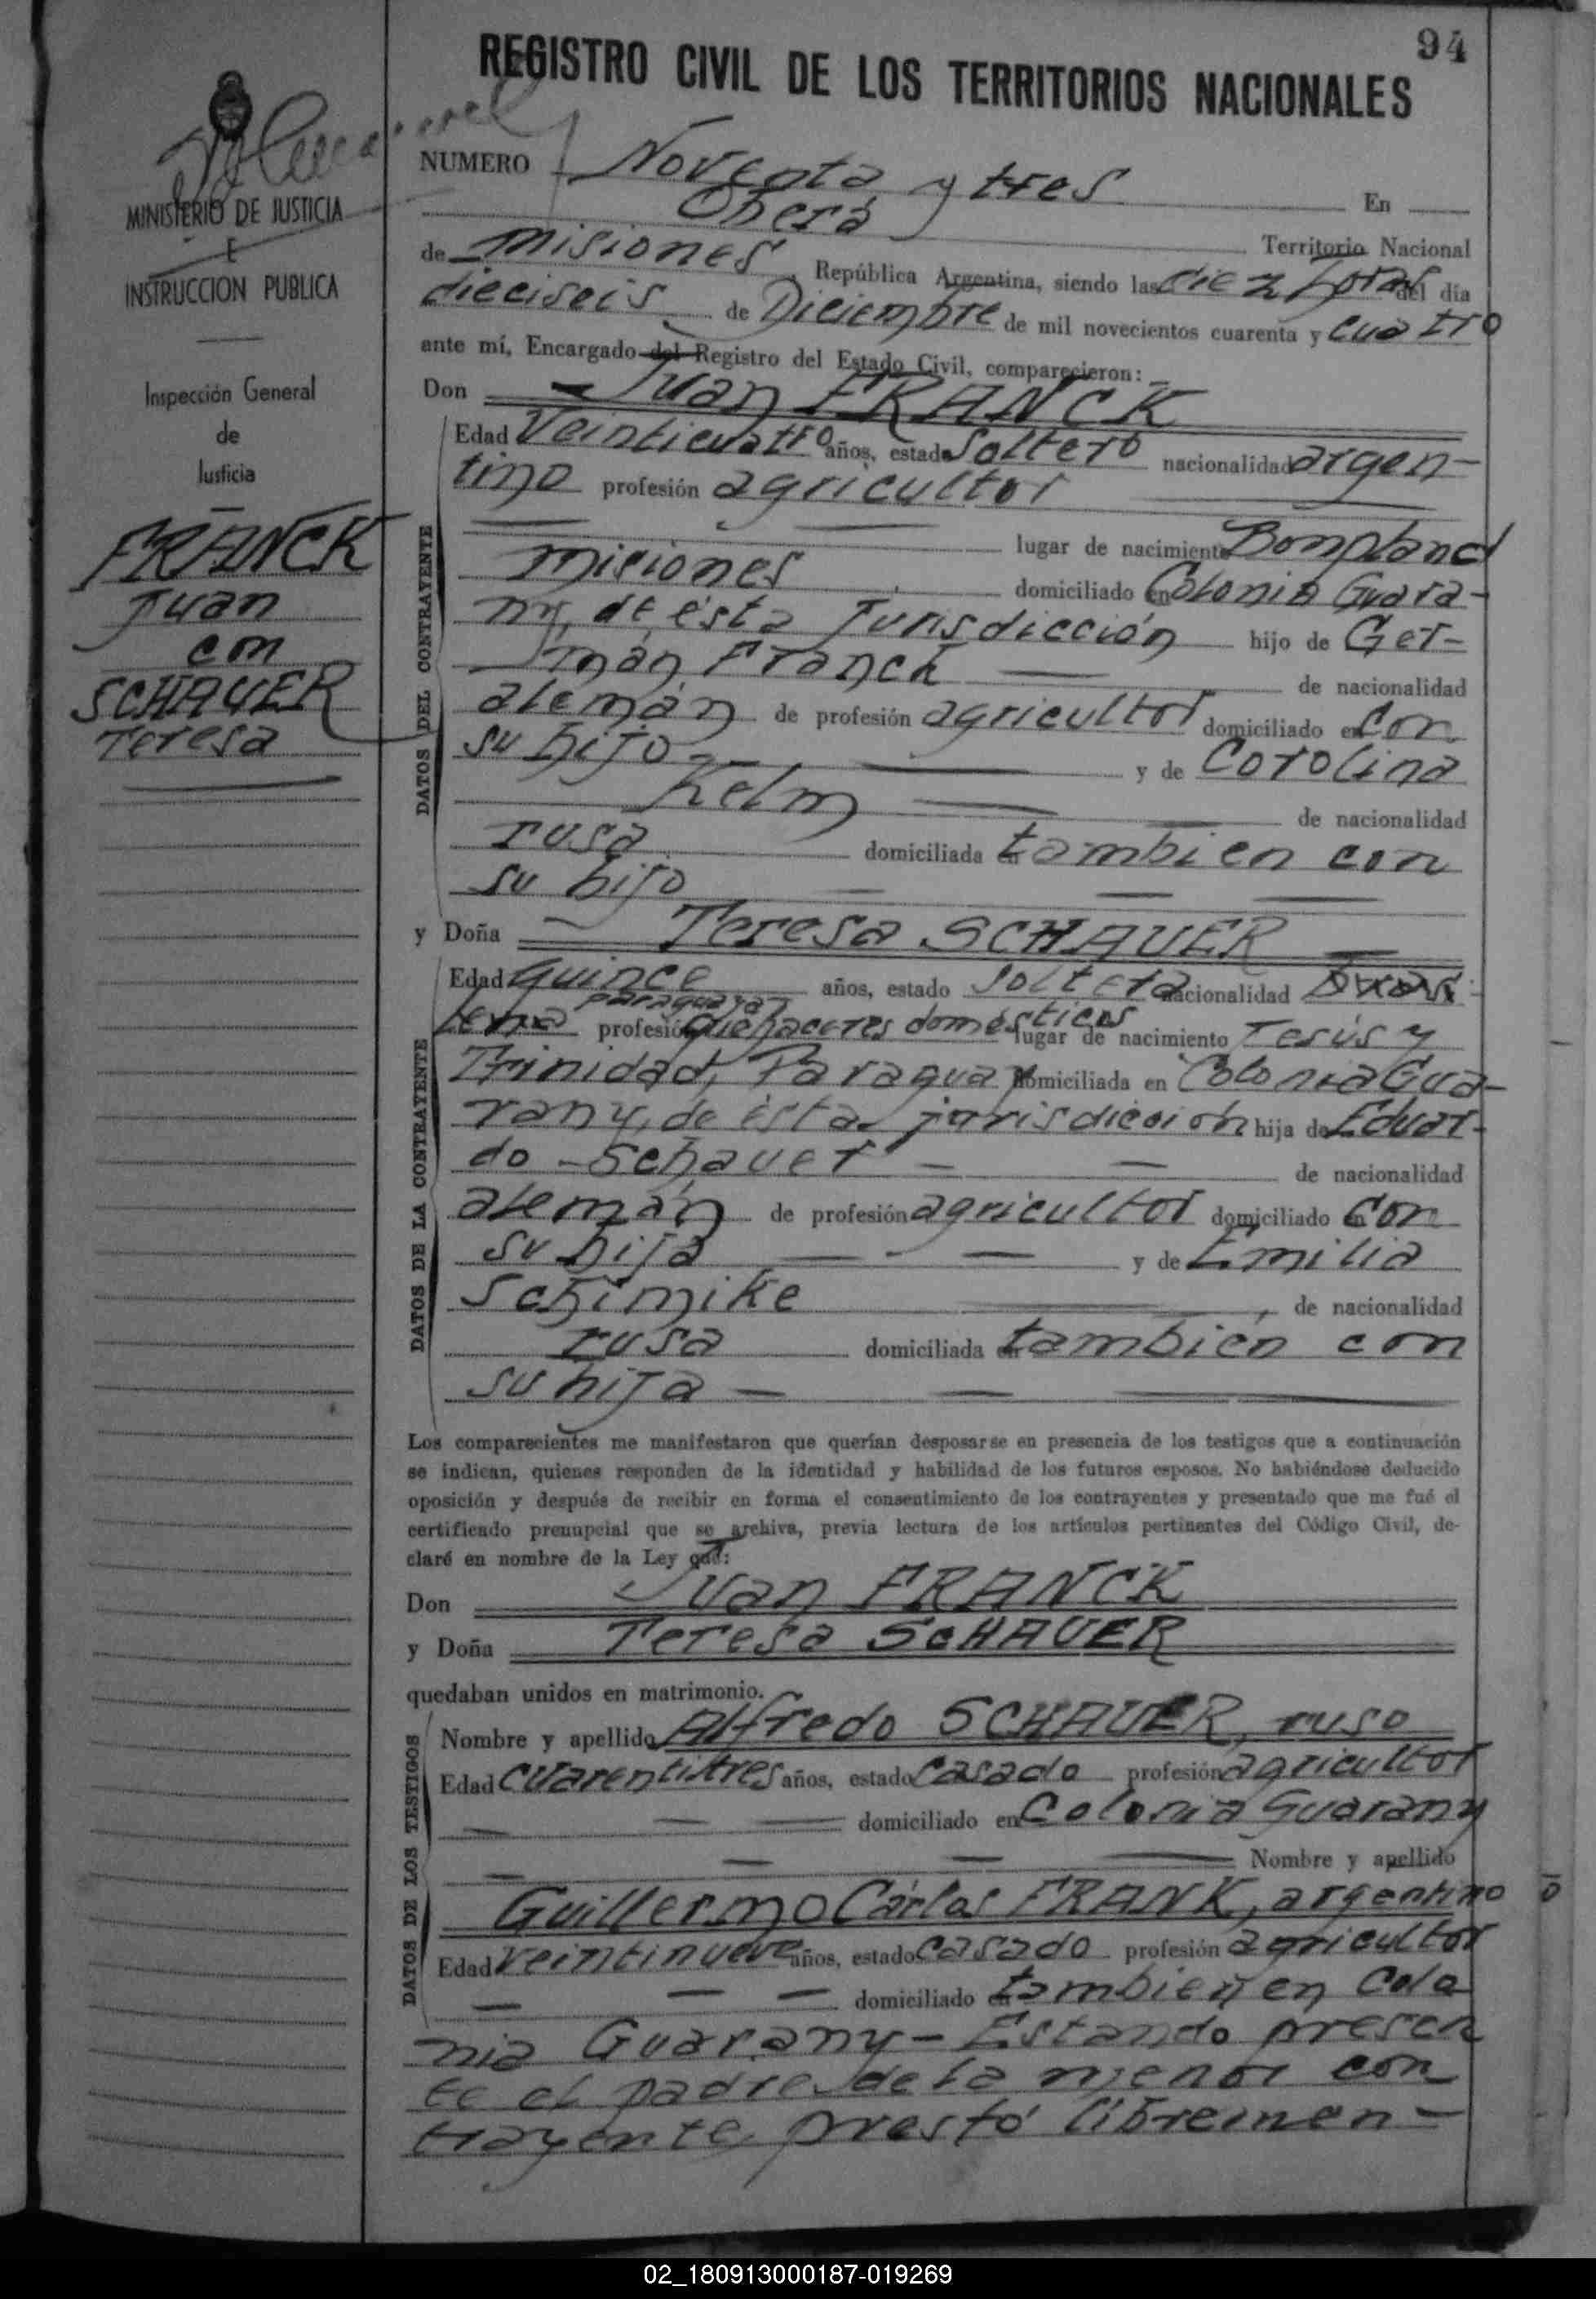 94
REGISTRO CIVIL DE LOS TERRITORIOS NACIONALES
MINISTERIO DE JUSTICIA
E
INSTRUCCION PUBLICA
Inspección General
de
Justicia
FRANCK
Juan
con
SCHAUER
Teresa
NUMERO Noventa y tres En
Oberá Territorio Nacional
de Misiones, República Argentina, siendo las diez horas del día
dieciseis de Diciembre de mil novecientos cuarenta y cuatro
ante mí, Encargado del Registro del Estado Civil, comparecieron:
Don Juan FRANCK
DATOS DEL CONTRAYENTE
Edad Veinticuatro años, estado Soltero nacionalidad argen-
tino profesión agricultor
lugar de nacimiento Bompland
Misiones domiciliado en Colonia Guara-
ny, de ésta Jurisdicción hijo de Ger-
mán Franck de nacionalidad
alemán de profesión agricultor domiciliado en con
su hijo y de Carolina
Kelm de nacionalidad
rusa domiciliada en tambien con
su hijo
y Doña Teresa SCHAUER
DATOS DE LA CONTRAYENTE
Edad Quince años, estado Soltera nacionalidad
paraguaya
profesión quehaceres domésticos lugar de nacimiento Jesús y
Trinidad, Paraguay domiciliada en Colonia Gua-
rany, de ésta jurisdicción hija de Eduar-
do Schauer de nacionalidad
alemán de profesión agricultor domiciliado en con
su hija y de Emilia
Schimike, de nacionalidad
rusa domiciliada en también con
su hija
Los comparecientes me manifestaron que querían desposarse en presencia de los testigos que a continuación
se indican, quienes responden de la identidad y habilidad de los futuros esposos. No habiéndose deducido
oposición y después de recibir en forma el consentimiento de los contrayentes y presentado que me fué el
certificado prenupcial que se archiva, previa lectura de los artículos pertinentes del Código Civil, de-
claré en nombre de la Ley que:
Don Juan FRANCK
y Doña Teresa SCHAUER
quedaban unidos en matrimonio.
DATOS DE LOS TESTIGOS
Nombre y apellido Alfredo SCHAUER, ruso
Edad cuarentitres años, estado casado profesión agricultor
domiciliado en Colonia Guarany
Nombre y apellido
Guillermo Cárlos FRANK, argentino
Edad veintinueve años, estado casado profesión agricultor
domiciliado en tambien en Colo
nia Guarany - Estando presen
te el padre de la menor con
trayente, prestó libremen-
02_180913000187-019269